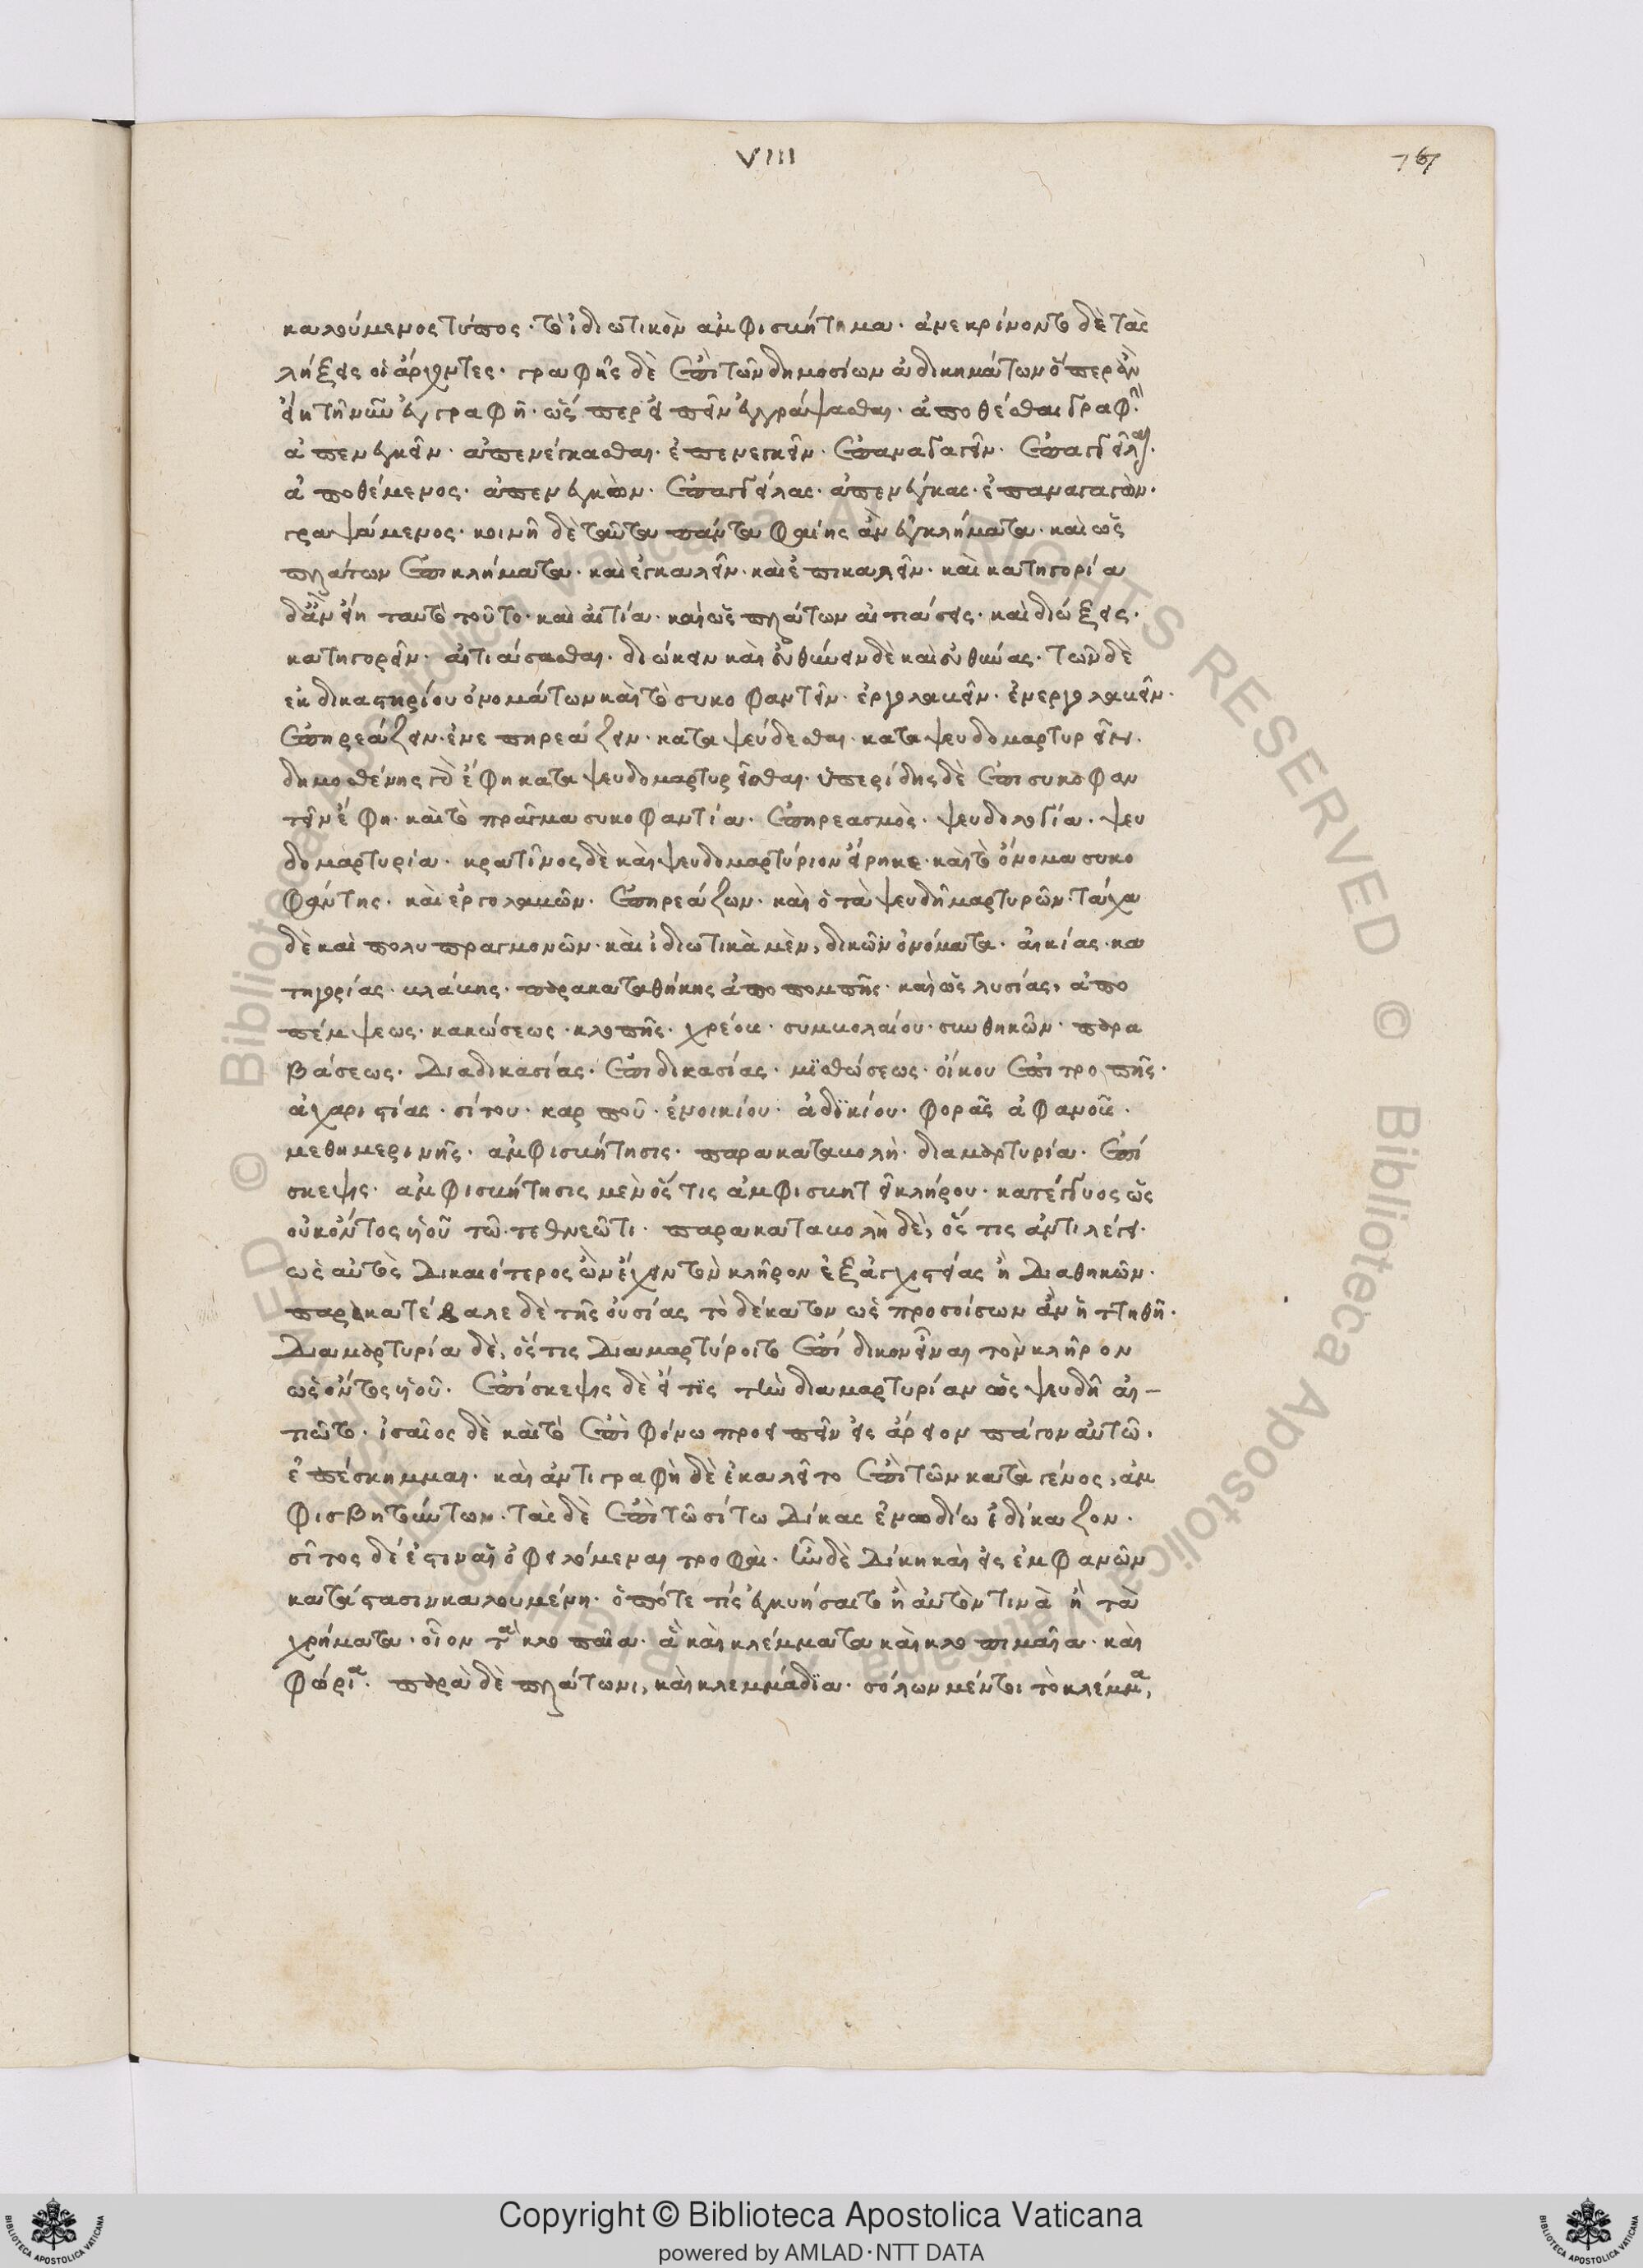 VIII
767
καλούμενος τύπος· τὸ ἰδιωτικὸν ἀμφισβήτημα· ἀνεκρίνοντο δὲ τὰς
λήξεις οἱ ἄρχοντες· γραφῆς δὲ ἐπὶ τῶν δημοσίων ἀδικημάτων ὅπερ ἂν
εἴη τῇ νῦν ἐγγραφῇ· ὥσπερ εἰπεῖν ἐγγράψασθαι· ἀποθέσθαι γραφήν·
ἀπενεγκεῖν· ἀπενέγκασθαι· ἐπενεγκεῖν· ἐπαναγαγεῖν· ἐπαγγεῖλαι·
ἀποθέμενος· ἀπενεγκών· ἐπαγγείλας· ἀπενέγκας· ἐπαναγαγών·
γραψάμενος· κοινῇ δὲ ταῦτα πάντα φαίης ἂν ἐγκλήματα· καὶ ὡς
πλάτων ἐπικλήματα· καὶ ἐγκαλεῖν· καὶ ἐπικαλεῖν· καὶ κατηγορία
δ' ἂν εἴη ταυτὸ τοῦτο· καὶ αἰτία· καὶ ὡς πλάτων αἰτιάσεις· καὶ διώξεις·
κατηγορεῖν· αἰτιάσασθαι· διώκειν καὶ εὐθύνειν δὲ καὶ εὐθύνας· τῶν δὲ
ἐκ δικαστηρίου ὀνομάτων καὶ τὸ συκοφαντεῖν· ἐργολαβεῖν· ἐνεργολαβεῖν·
ἐπηρεάζειν· ἐνεπηρεάζειν· καταψεύδεσθαι· καταψευδομαρτυρεῖν·
δημοσθένης δὲ ἔφη καταψευδομαρτυρεῖσθαι· ὑπερίδης δὲ ἐπισυκοφαν
τεῖν ἔφη· καὶ τὸ πρᾶγμα συκοφαντία· ἐπηρεασμὸς· ψευδολογία· ψευ
δομαρτυρία· κρατῖνος δὲ καὶ ψευδομαρτύριον εἴρηκε· καὶ τὸ ὄνομα συκο
φάντης· καὶ ἐργολαβῶν· ἐπηρεάζων· καὶ ὁ τὰ ψευδῆ μαρτυρῶν· τάχα
δὲ καὶ πολυπραγμονῶν· καὶ ἰδιωτικὰ μὲν, δικῶν ὀνόματα· αἰκίας· κα
τηγορίας· βλάβης· παρακαταθήκης ἀποπομπῆς· καὶ ὡς λυσίας, ἀπο
πέμψεως· κακώσεως· κλοπῆς· χρέους· συμβολαίου· συνθηκῶν· παρα
βάσεως· Διαδικασίας· ἐπιδικασίας· μισθώσεως· οἴκου ἐπιτροπῆς·
ἀχαριστίας· σίτου· καρποῦ· ἐνοικίου· ἀδικίου· φορᾶς ἀφανοῦς·
μεθημερινῆς· ἀμφισβήτησις· παρακαταβολὴ· διαμαρτυρία· ἐπί
σκεψις· ἀμφισβήτησις μὲν ὅς τις ἀμφισβητεῖ κλήρου· κατέγγυος ὡς
οὐκ ὄντος υἱοῦ τῷ τεθνεῶτι· παρακαταβολὴ δὲ, ὅς τις ἀντιλέγει·
ὡς αὐτὸς Δικαιότερος ὢν ἔχειν τὸν κλῆρον ἐξ ἀγχιστείας ἢ Διαθηκῶν·
παρεκατέβαλε δὲ τῆς οὐσίας τὸ δέκατον ὡς προσοίσων ἂν ἡττηθῇ·
Διαμαρτυρία δὲ, ὅς τις Διαμαρτύροιτο ἐπίδικον εἶναι τὸν κλῆρον
ὡς ὄντος υἱοῦ· ἐπίσκεψις δὲ εἴ τις τὴν διαμαρτυρίαν ὡς ψευδῆ αἰ-
τιῷτο· ἰσαῖος δὲ καὶ τὸ ἐπὶ φόνῳ προειπεῖν εἰς ἄρειον πάγον αὐτῷ·
ἐπέσκημμαι· καὶ ἀντιγραφὴ δὲ ἐκαλεῖτο ἐπὶ τῶν κατὰ γένος, ἀμ
φισβητούντων· τὰς δὲ ἐπὶ τῷ σίτῳ Δίκας ἐν ᾠδείῳ ἐδίκαζον·
σῖτος δέ ἐστιν αἱ ὀφειλόμεναι τροφαὶ· ἦν δὲ Δίκη καὶ εἰς ἐμφανῶν
κατάστασιν καλουμένη· ὁπότε τίς ἐγγυήσαιτο ἢ αὐτὸν τινὰ ἢ τὰ
χρήματα· οἷον τὰ κλοπαῖα· ἃ καὶ κλέμματα καὶ κλοπιμαῖα· καὶ
φώρια· παρὰ δὲ πλάτωνι, καὶ κλεμμάδια· σόλων μέντοι τὸ κλέμμα,
Copyright © Biblioteca Apostolica Vaticana
powered by AMLAD·NTT DATA